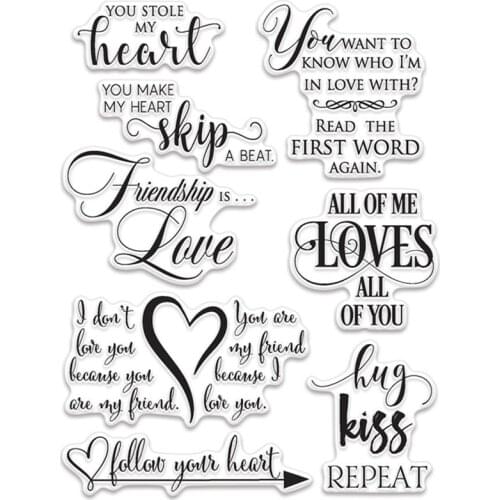 YOU STOLE
MY
heart
YOU MAKE
MY HEART
skip
A BEAT.
Friendship IS . . .
Love
I don't
love you
because you
are my friend.
You are
my friend
because I
love you.
follow your heart
You WANT TO
KNOW WHO I'M
IN LOVE WITH?
READ THE
FIRST WORD
AGAIN.
ALL OF ME
LOVES
ALL
OF YOU
hug
kiss
REPEAT